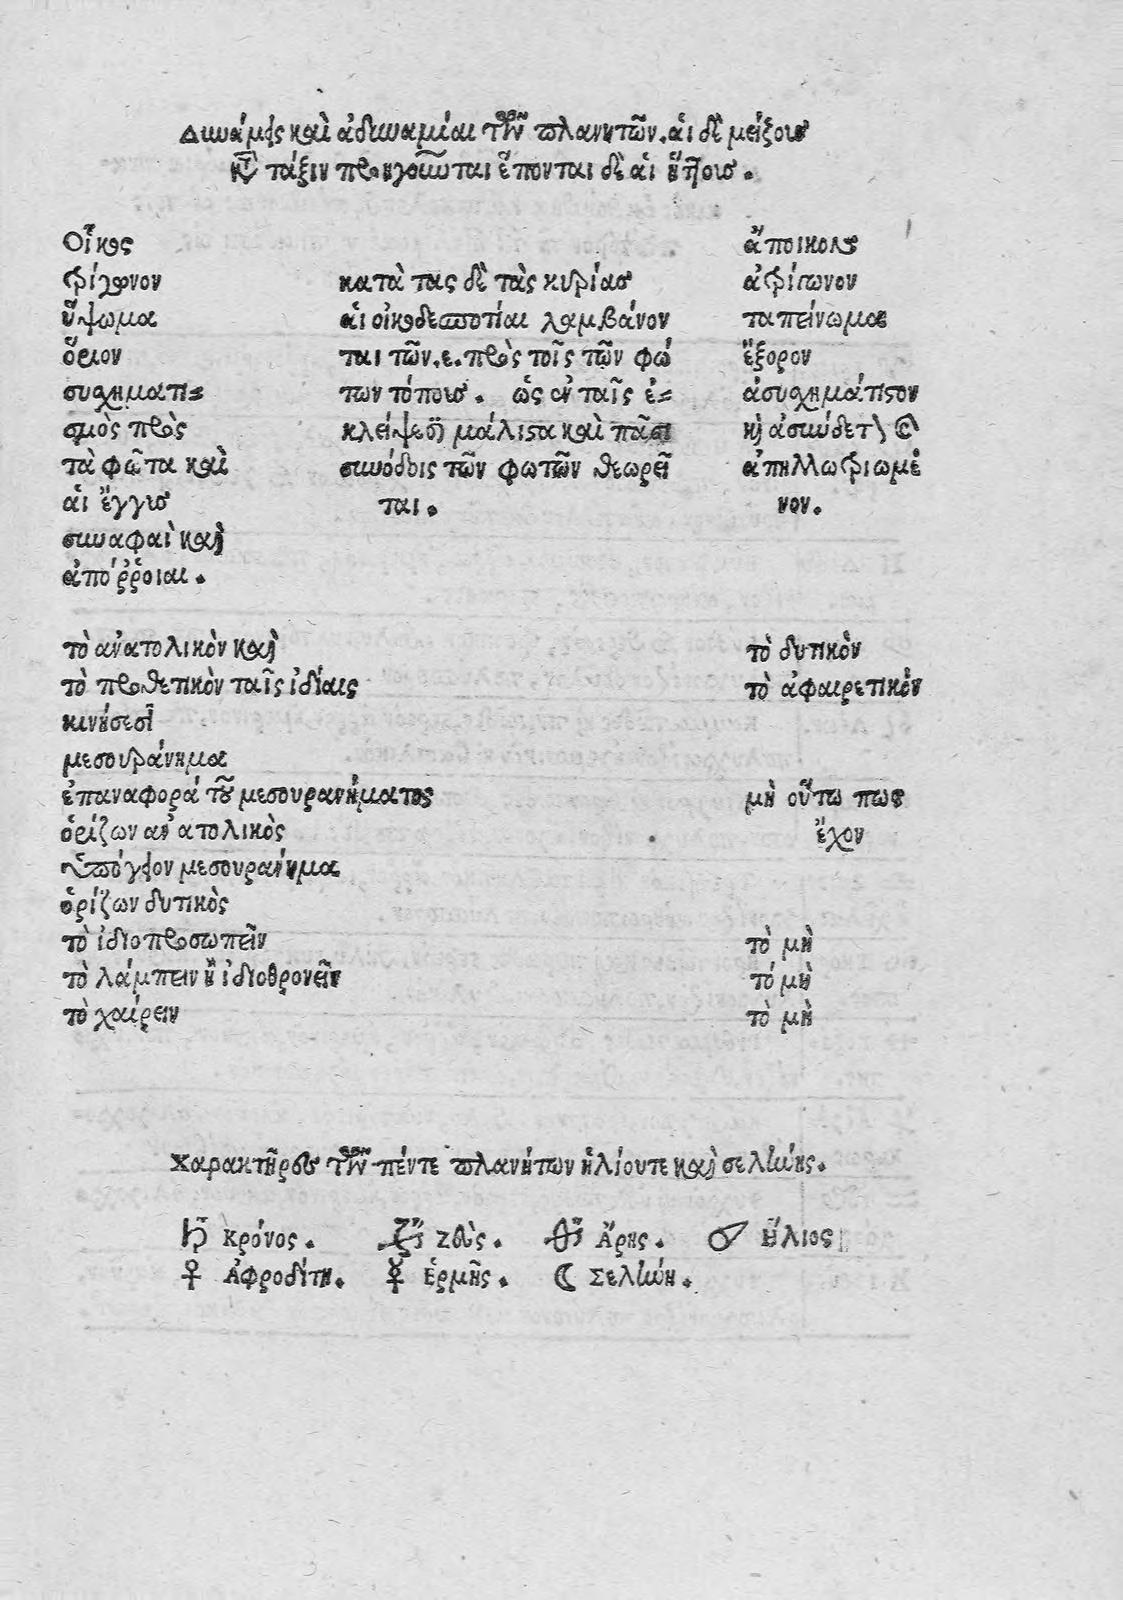 Δυνάμεις καὶ ἀδυναμίαι τῶν πλανητῶν. αἱ δὲ μείζους
κατὰ τάξιν προηγοῦνται ἕπονται δὲ αἱ ἥττους.
Οἶκος
τρίγωνον
ὕψωμα
ὅριον
συσχηματι=
σμὸς πρὸς
τὰ φῶτα καὶ
αἱ ἔγγισ
συναφαὶ καὶ
ἀπόῤῥοιαι.
κατὰ τας δὲ τὰς κυρίας
αἱ οἰκοδεσποτίαι λαμβάνον
ται τῶν .ε. πρὸς τοῖς τῶν φώ
των τόποις. ὡς ἐν ταῖς ἐ=
κλείψεσι μάλιστα καὶ πᾶσι
συνόδοις τῶν φωτῶν θεωρεῖ
ται.
ἄποικον
ἀτρίγωνον
ταπείνωμα
ἔξορον
ἀσυσχημάτιστον
καὶ ἀσύνδετον καὶ
ἀπηλλωτριωμέ
νον.
τὸ ἀνατολικὸν καὶ
τὸ προθετικὸν ταῖς ἰδίαις
κινήσεσι
μεσουράνημα
ἐπαναφορά τοῦ μεσουρανήματος
ὁρίζων ἀνατολικὸς
ὑπόγειον μεσουράνημα
ὁρίζων δυτικὸς
τὸ ἰδιοπροσωπεῖν
τὸ λάμπειν ἢ ἰδιοθρονεῖν
τὸ χαίρειν
τὸ δυτικὸν
τὸ ἀφαιρετικὸν
μὴ οὕτω πως
ἔχον
τὸ μὴ
τὸ μὴ
τὸ μὴ
Χαρακτῆρες τῶν πέντε πλανήτων ἡλίου τε καὶ σελήνης.
♄ Κρόνος. Ζεὺς. Ἄρης. Ἥλιος
♀ Ἀφροδίτη. ☿ Ἑρμῆς. ☾ Σελήνη.